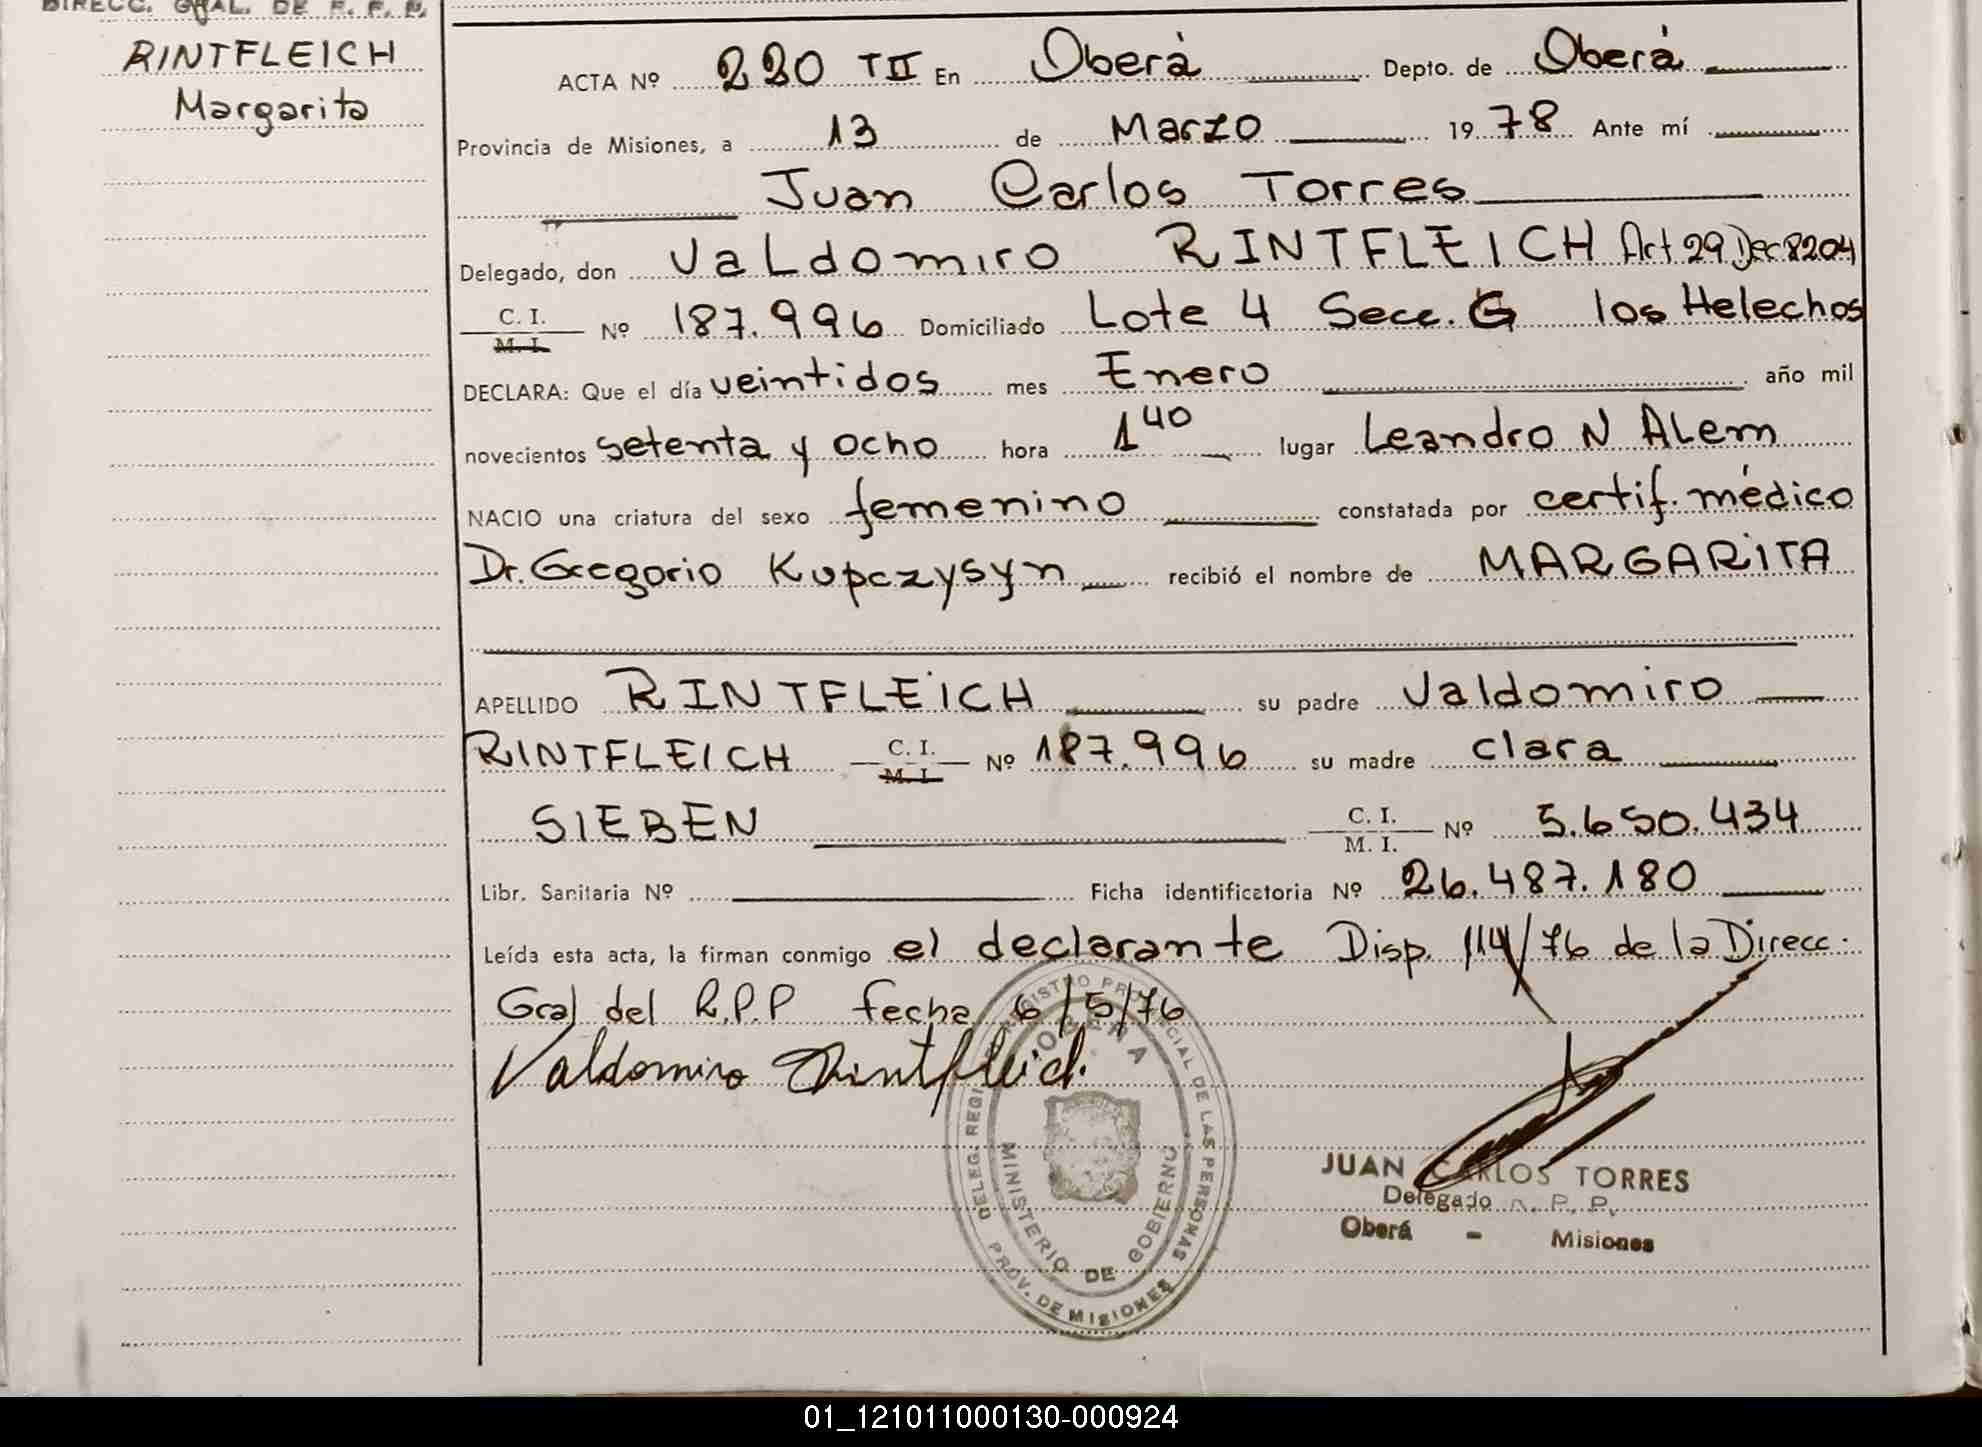 DIRECC. GRAL. DE
RINTFLEICH
Margarita
ACTA Nº 220 TII En Oberá Depto. de Oberá
Provincia de Misiones, a 13 de Marzo 1978 Ante mí
Juan Carlos Torres
Delegado, don Valdomiro RINTFLEICH Art 29 Dec 8204
C. I.
M. I. Nº 187.996 Domiciliado Lote 4 Secc. G los Helechos
DECLARA: Que el día veintidos mes Enero año mil
novecientos setenta y ocho hora 1 40 lugar Leandro N Alem
NACIO una criatura del sexo femenino constatada por certif. médico
Dr. Gregorio Kupczysyn recibió el nombre de MARGARITA
APELLIDO RINTFLEICH su padre Valdomiro
RINTFLEICH C. I. M. I. Nº 187.996 su madre clara
SIEBEN C. I. M. I. Nº 5.650.434
Libr. Sanitaria Nº Ficha identificatoria Nº 26.487.180
Leída esta acta, la firman conmigo el declarante Disp. 114/76 de la Direcc.
Gral del R.P.P fecha 6/5/76
Valdomiro Rintfleich.
REGISTRO PROVINCIAL DE LAS PERSONAS
OBERA
MINISTERIO DE GOBIERNO
PROV. DE MISIONES
JUAN CARLOS TORRES
Delegado R. P. P.
Oberá - Misiones
01_121011000130-000924